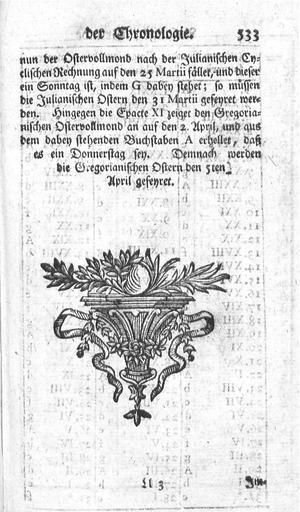 der Chronologie. 533
nun der Ostervollmond nach der Julianischen Cy-
clischen Rechnung auf den 25 Martii fället, und dieser
ein Sonntag ist, indem G dabey stehet; so müssen
die Julianischen Ostern den 31 Martii gefeyret wer-
den. Hingegen die Epacte XI zeiget den Gregoria-
nischen Ostervollmond an auf den 2. April, und aus
dem dabey stehenden Buchstaben A erhellet, daß
es ein Donnerstag sey. Demnach werden
die Gregorianischen Ostern den 5ten
April gefeyret.
Ll 3